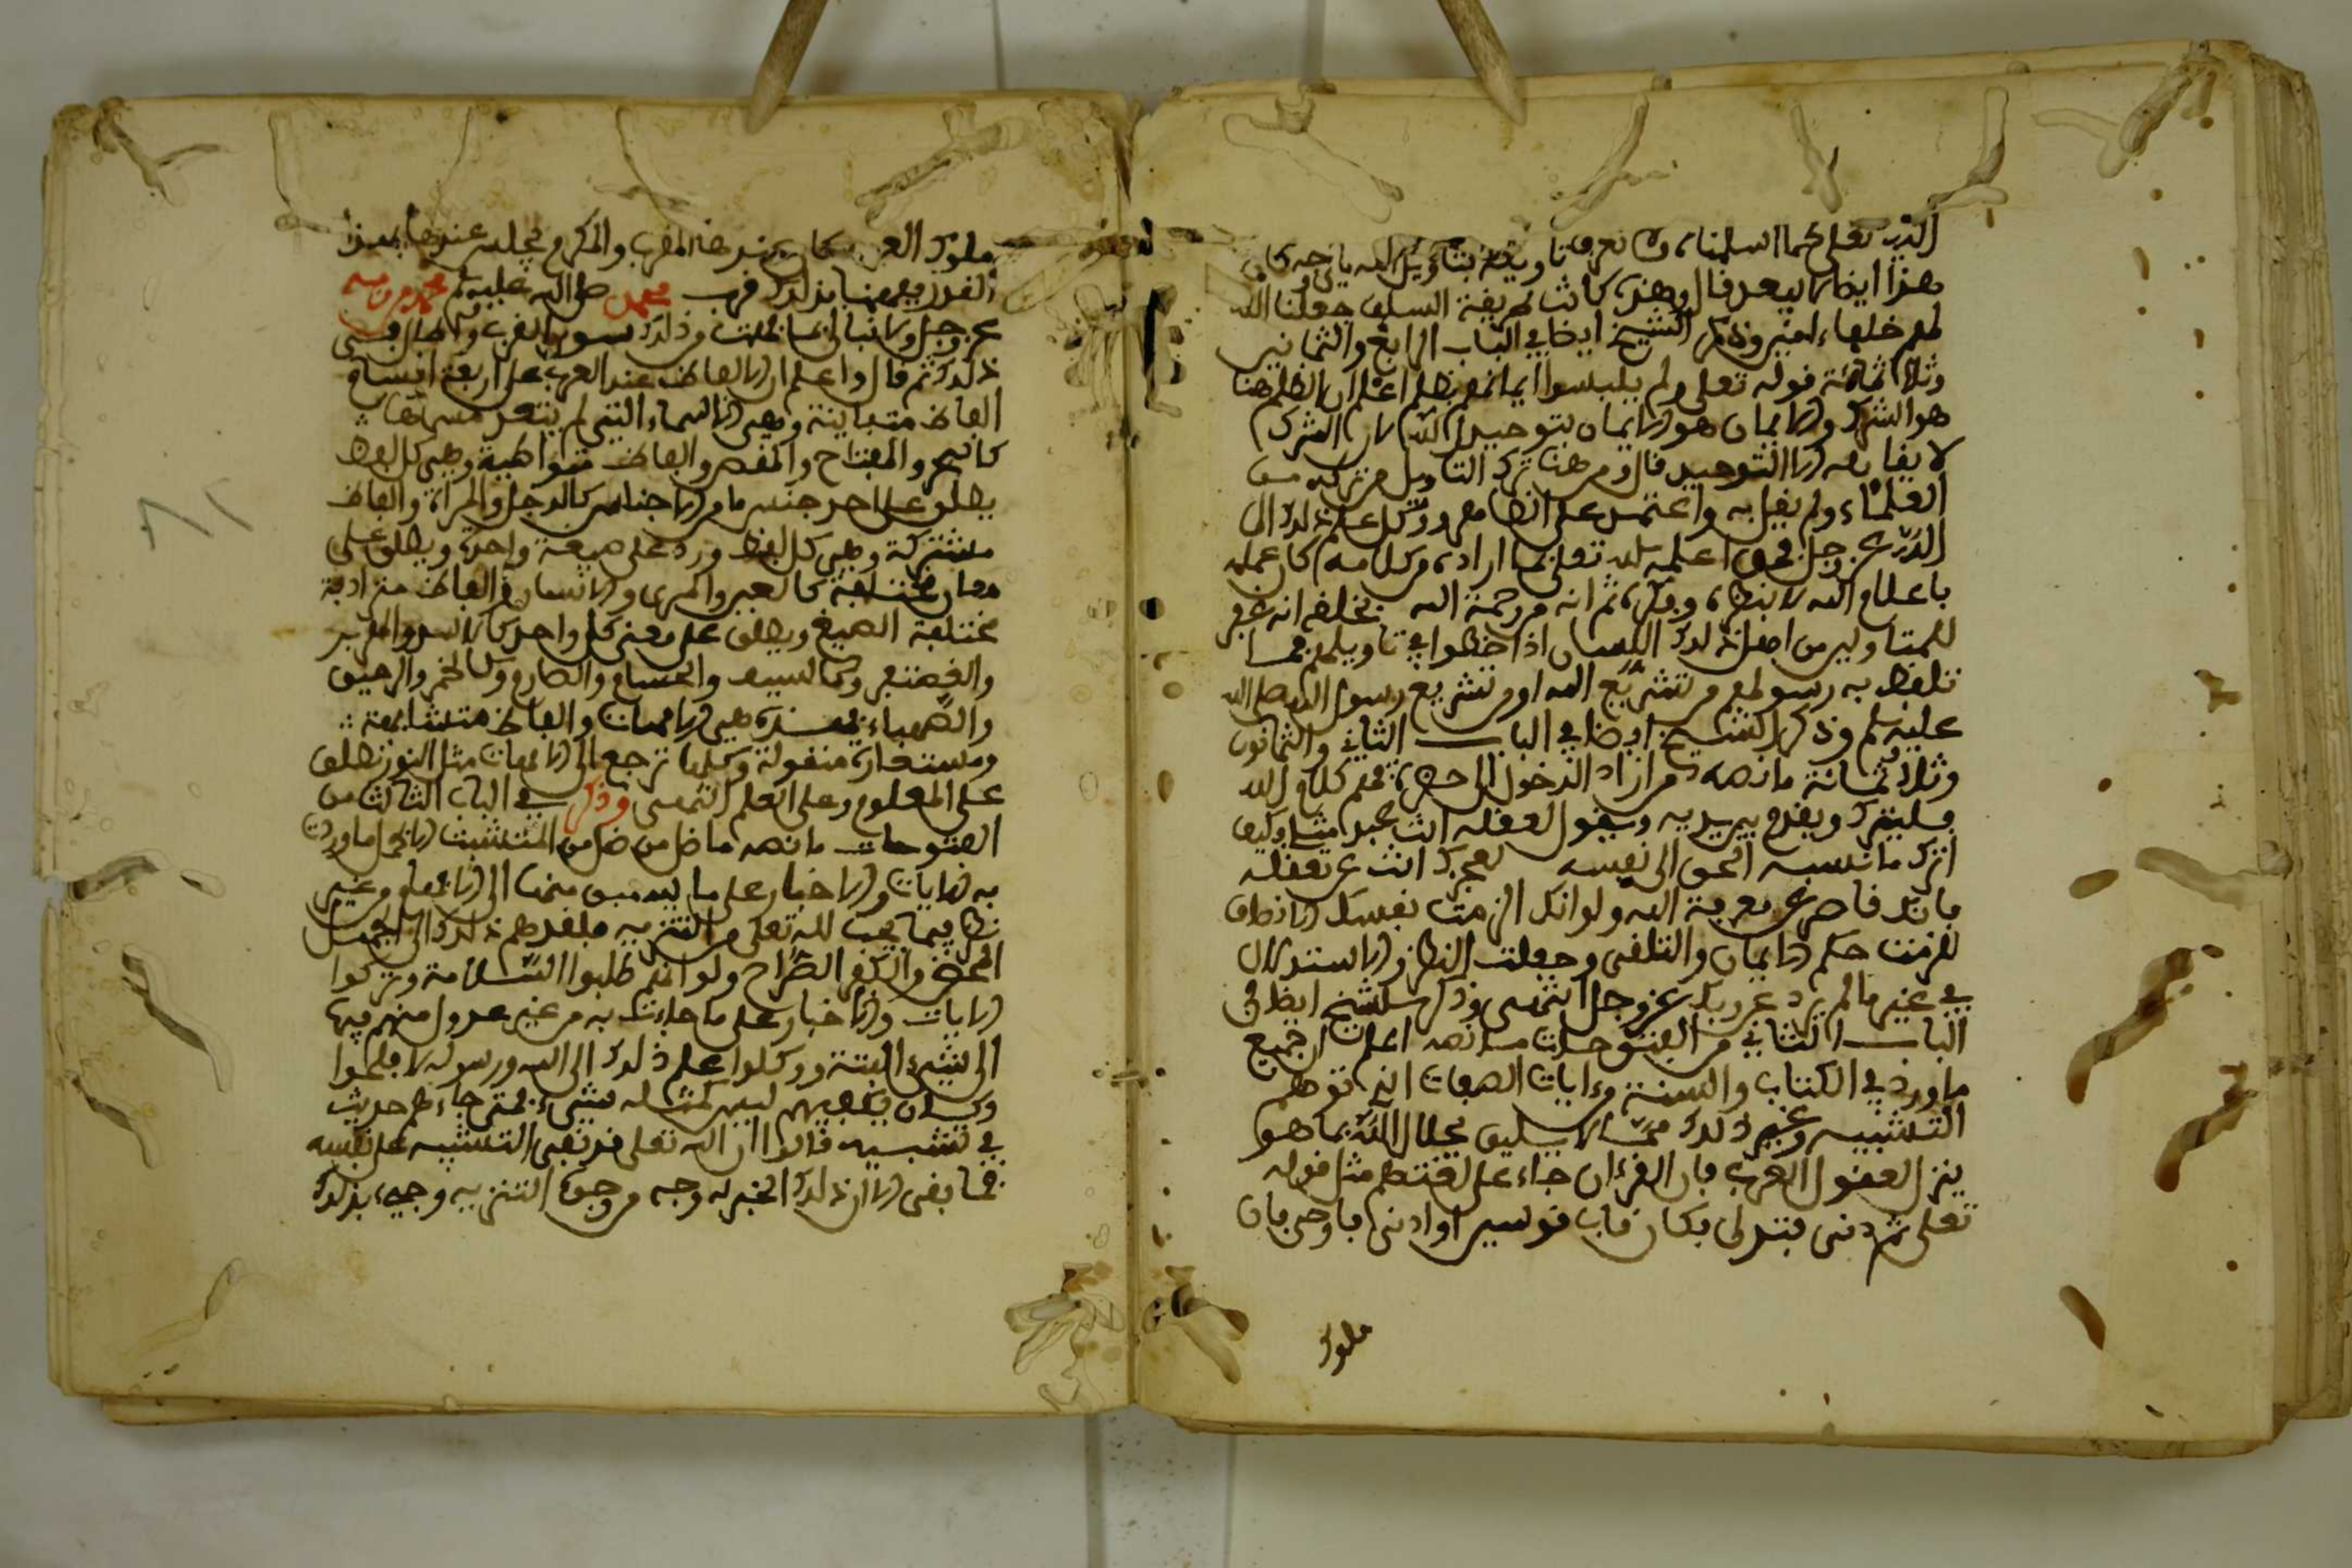 الله تعلى كما اسلمناه ولا نعرفنا
هذا ايضا لا يبعد فال وهذه كانت طريقة السلف جعلنا الله
لهم خلفاء امين وذكر الشيخ ايضا في الباب الرابع والثمانين
وثلاثمائة قوله تعلى ولم يلبسوا ايمانهم بظلم اعلم ان الظلم هنا
هو الشرك والايمان هو الايمان بتوحيد الله لان الشرك
لا يقابله الا التوحيد قال ومن هنا ترك التاويل من تركه من
العلماء ولم يقل به واعتمد على الظاهر ووكل علم ذلك الى
الله عز وجل فمن اعلمه الله تعلى بما اراده من كلامه كان علمه
باعلام الله لا بنظره وفكره ثم انه من رحمة الله بخلقه انه غفر
للمتاولين من اهل ذلك اللسان اذا اخطوا في تاويلهم فيما
تلفظ به رسولهم من تشريع الله او من تشريع رسول الله صلى الله
عليه وسلم وذكر الشيخ ايضا في الباب الثاني والثمانون
وثلاثمائة ما نصه من اراد الدخول الى حضرة فهم كلام الله
فليترك ويقدم بين يديه ويقول لعقله انت عبد مثلي وكيف
اترك ما نسبه الحق الى نفسه لعجزك انت عن تعقله
فانك قاصر عن معرفة الله ولو انك الزمت نفسك الانصاف
للزمت حكم الايمان والتلقي وجعلت النظر والاستدلال
في غير ما لم يرد عن ربك عز وجل انتهى وذكر الشيخ ايضا في
الباب الثاني من الفتوحات ما نصه اعلم ان جميع
ما ورد في الكتاب والسنة من ايات الصفات التي توهم
التشبيه وغير ذلك مما لا يليق بجلال الله بما هو
ينزل لعقول العرب فان القرءان جاء على لغتهم مثل قوله
تعلى ثم دنى فتدلى فكان قاب قوسين او ادنى فاوحى فان
ملوك
ملوك العرب كان عندها المقرب والمكرم مجلسه عندها بهذا
القدر ففهمنا من ذلك قرب محمد صلى الله عليه وسلم من ربه
عز وجل ولا نبالي بما فهمت من ذلك سوى القرب واطال في
ذلك ثم قال واعلم ان الالفاظ عند العرب على اربعة اقسام
الفاظ متباينة وهي الاسماء التي لم يتعد مسماها
كالبحر والمفتاح والمقص والفاظ متواطية وهي كل لفظ
يطلق على احد جنس ما من الاجناس كالرجل والمراة والفاظ
مشتركة وهي كل لفظ ورد على صيغة واحدة ويطلق على
معان مختلفة كالعين والمشتري والانسان والفاظ مترادفة
مختلفة الصيغ ويطلق على معنى كل واحد كالاسد والهزبر
والغضنفر وكالسيف والحسام والصارم وكالخمر والرحيق
والصهباء فهذه هي الامهات والفاظ متشابهة
ومستعارة منقولة وكلها ترجع الى الامهات مثل النور تطلق
على المعلوم وعلى العلم انتهى وذكر في الباب الثالث من
الفتوحات ما نصه ما ضل من ضل من المتشبهة الا بحمل ما وردت
به الايات والاخبار على ما يسبق منها الى الافهام من غير
نظر فيما يجب لله تعلى من التنزيه فقادهم ذلك الى الجهل
المحض والكفر الصراح ولو انهم طلبوا السلامة وتركوا
الايات والاخبار على ما جاءت به من غير عدول منهم فيها
الى شيء البتة ووكلوا علم ذلك الى الله ورسوله لافلحوا
وكان يكفيهم ليس كمثله شيء فمتى جاءهم حديث
في تشبيه قالوا ان الله تعلى قد نفى التشبيه على نفسه
فما بقى الا ان ذلك الخبر له وجه من وجوه التنزيه وجيء بذلك